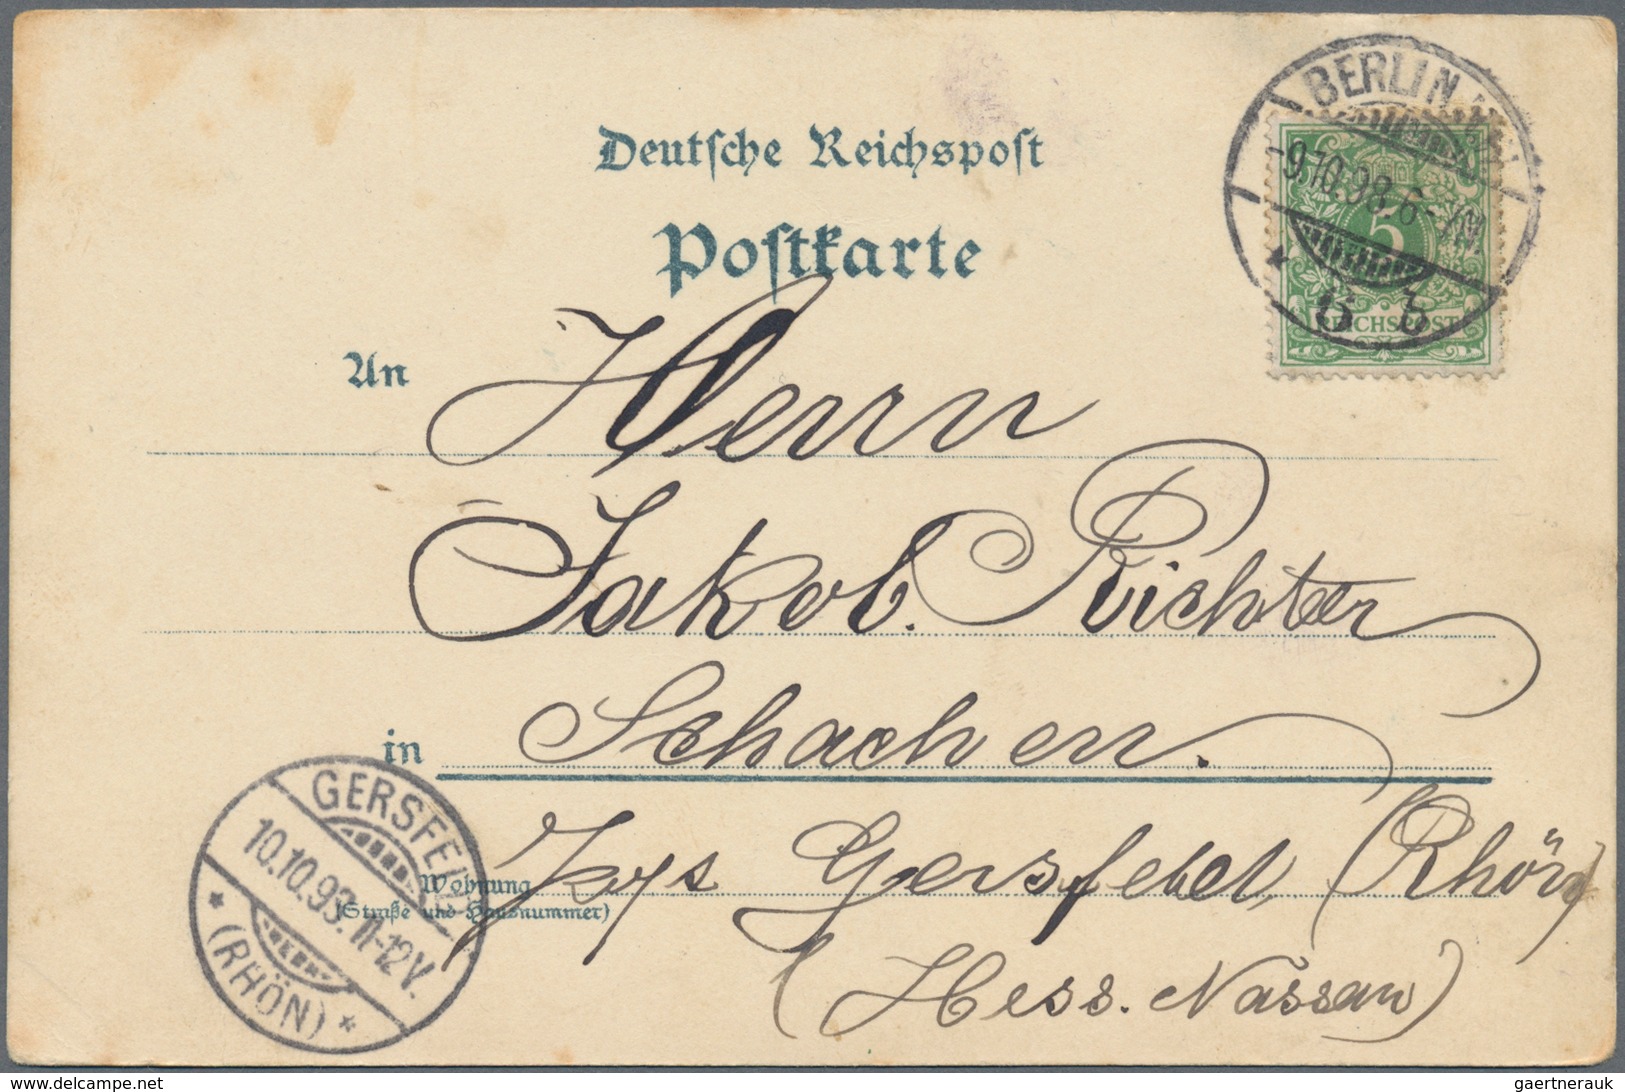 Deutsche Reichspost
Postkarte
BERLIN
-9.10.98.6-7N.
5
REICHSPOST
b
An Herrn
Jakob Richter
in Schachen.
Wohnung
(Straße und Hausnummer)
Gersfeld (Rhön)
(Hess. Nassau)
GERSFELD
10.10.98.11-12V.
* (RHÖN) *
www.delcampe.net
gaertnerauk